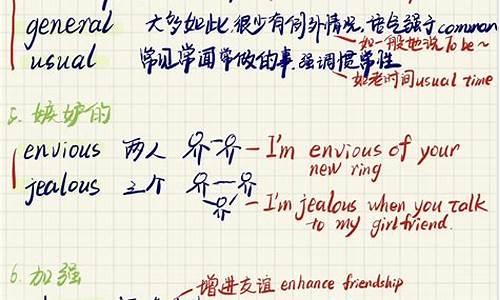 general 大多如此,很少有例外情况.语气强于common
如一般地说To be ~
usual 常见常闻常做的事.强调惯常性
如老时间usual time
5. 嫉妒的
envious 两人 I'm envious of your new ring
jealous 三个 I'm jealous when you talk to my girlfriend.
6. 加强
增进友谊 enhance friendship